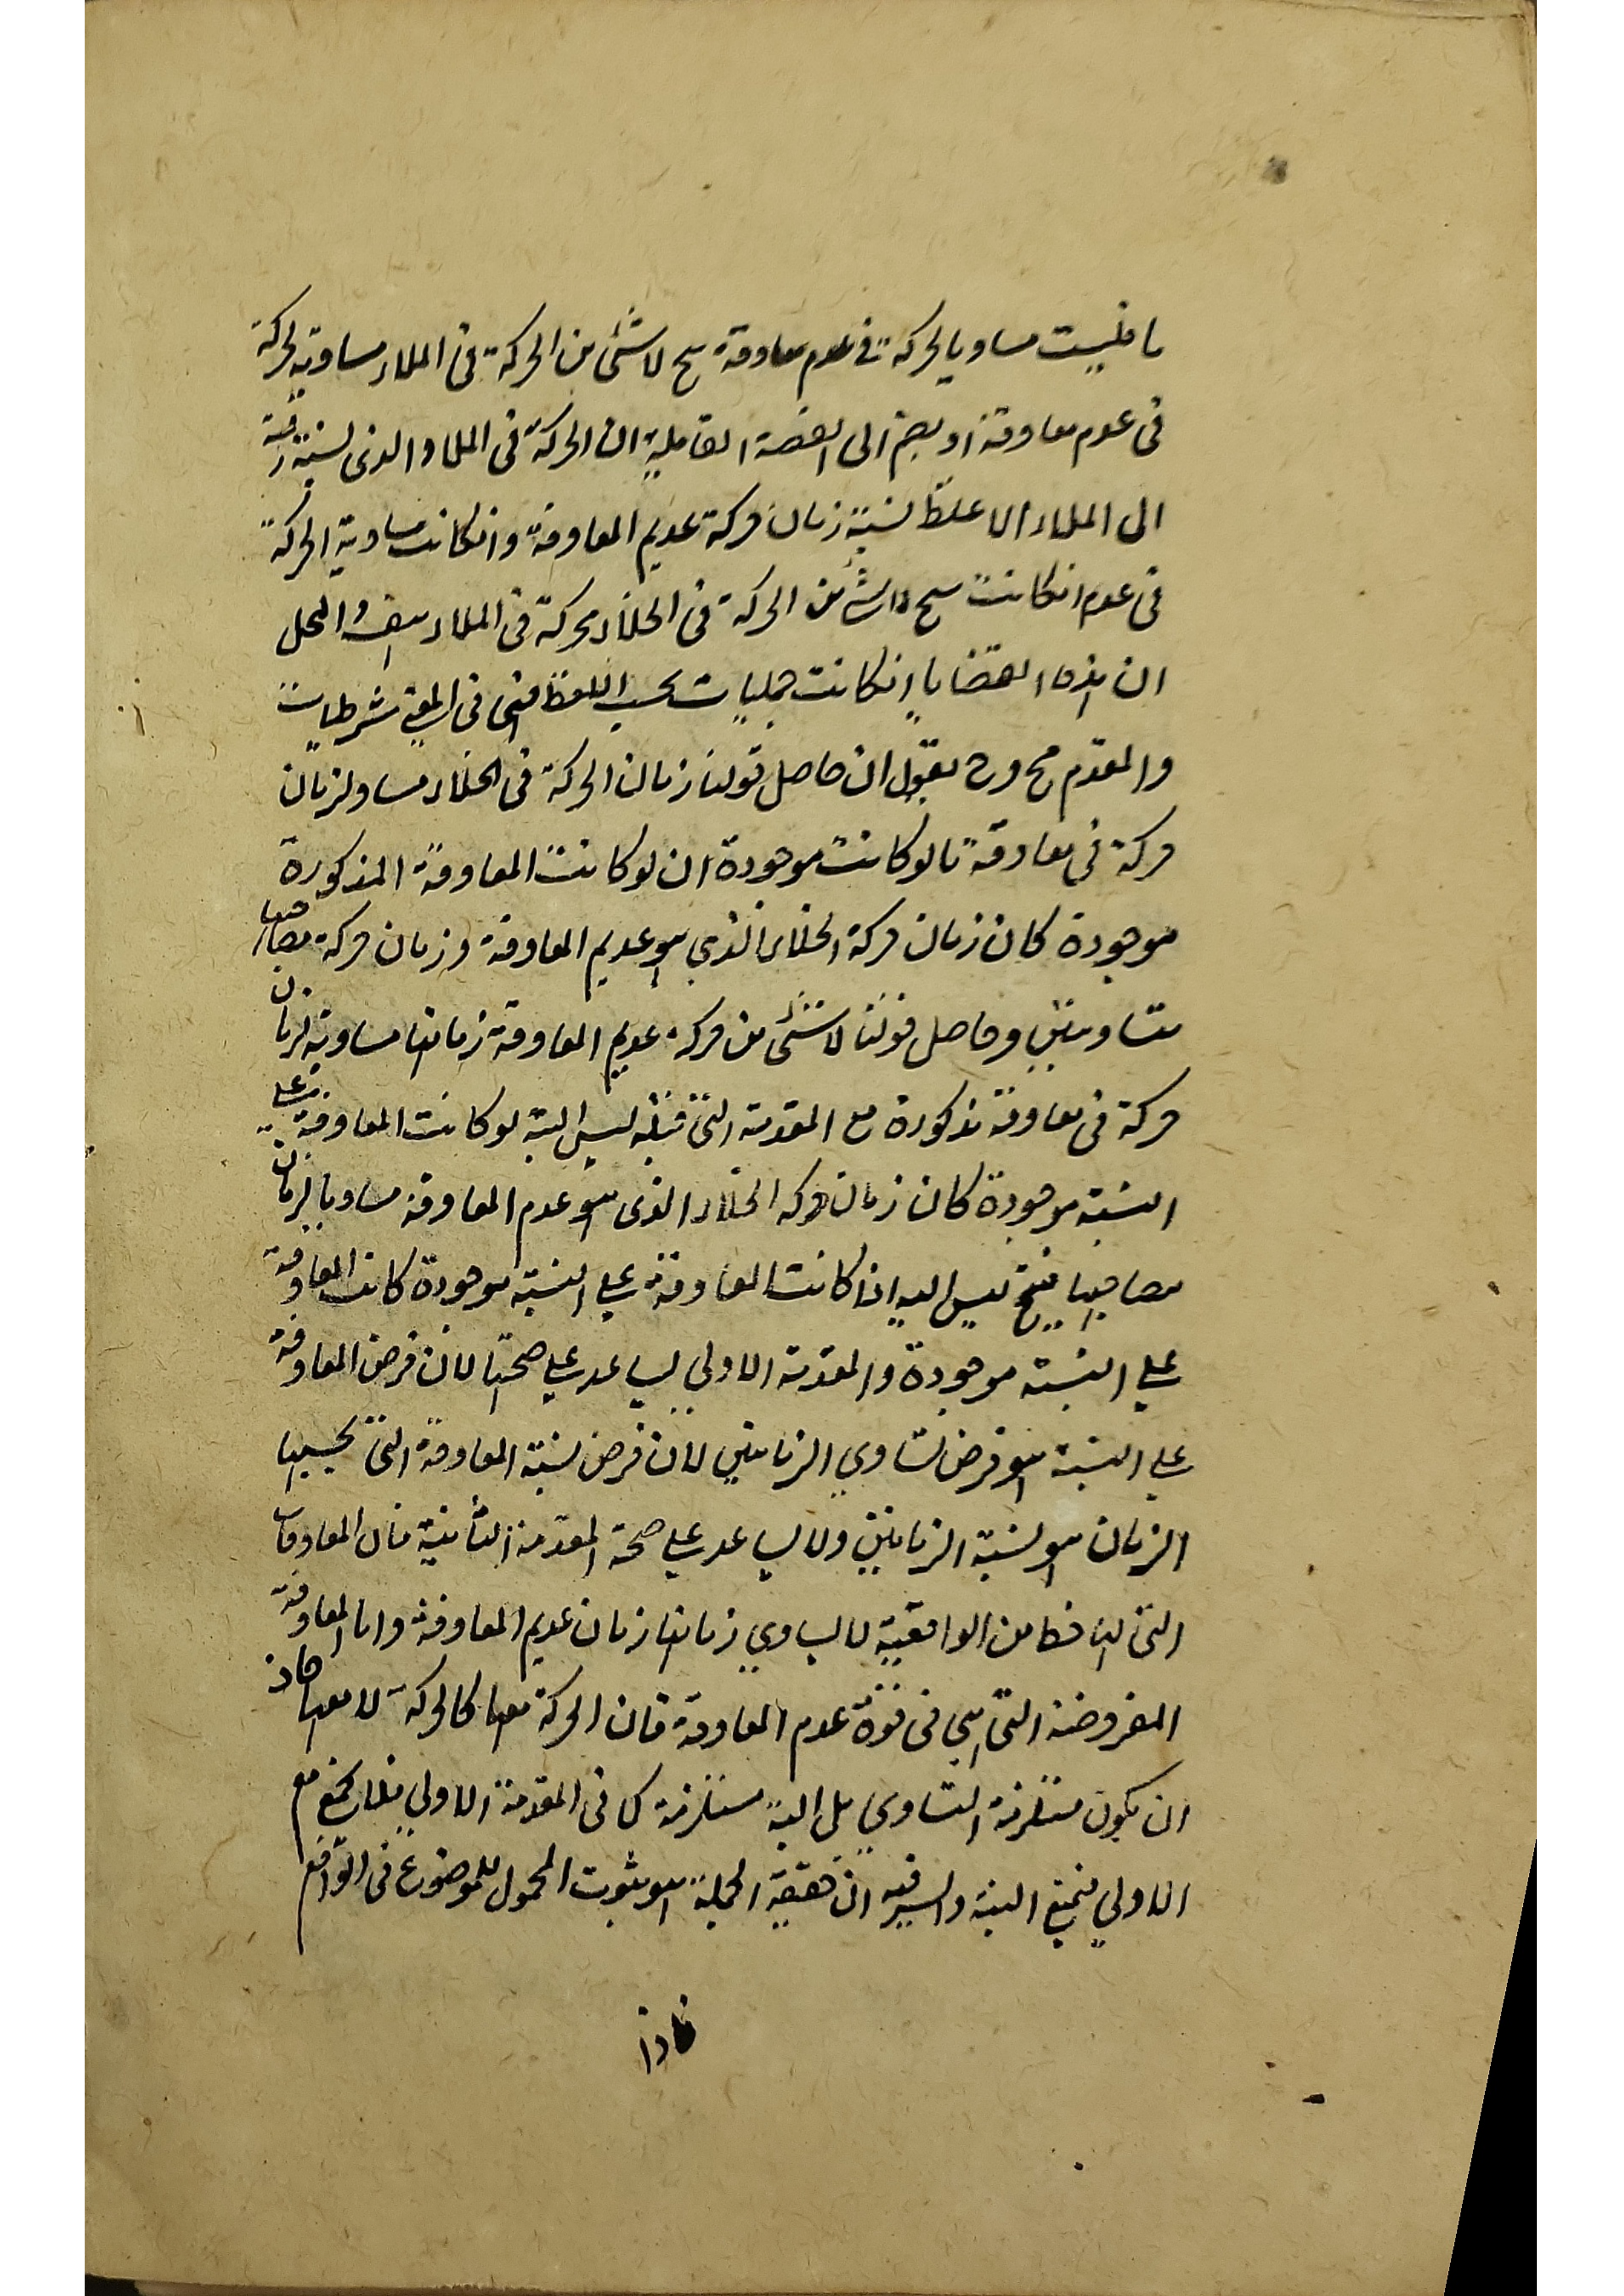 ما فليست مساويا لحركة فى عدم معاوقة ينتج لا شئ من الحركة فى الملاء مساوية لحركة
فى عدم معاوقة او يضم الى القضية القايلة ان الحركة فى الملاء الذى نسبة رقية
الى الملاء الاغلظ نسبة زمان حركة عديم المعاوقة وانكانت مساوية الحركة
فى عدم انكانت ينتج من الحركة فى الخلاء حركة فى الملاء هف والحل
ان هذه القضايا انكانت حمليات بحسب اللفظ فهى فى المعنى شرطيات
والمقدم مح وح نقول ان حاصل قولنا زمان الحركة فى الخلاء مساو لزمان
حركة فى معاوقة ما لو كانت موجودة ان لو كانت المعاوقة المذكورة
موجودة كان زمان حركة الخلاء الذي هو عديم المعاوقة وزمان حركة مصاحبها
متساويين وحاصل قولنا لا شئ من حركة عديم المعاوقة زمانها مساوية لزمان
حركة فى معاوقة مذكورة مع المقدمة التى قبله ليس البتة لو كانت المعاوقة على
النسبة موجودة كان زمان حركة الخلاء الذى هو عدم المعاوقة مساويا لزمان
مصاحبها فينتج ليس البتة اذا كانت المعاوقة على النسبة موجودة كانت المعاوقة
على النسبة موجودة والمقدمة الاولى يساعد على صحتها لان فرض المعاوقة
على النسبة هو فرض تساوي الزمانين لان فرض نسبة المعاوقة التى بحسبها
الزمان هو نسبة الزمانين ولا يساعد على صحة المقدمة الثانية فان المعاوقات
التى لها حظ من الواقعية لا يساوي زمانها زمان عديم المعاوقة واما المعاوقة
المفروضة التى هى فى قوة عدم المعاوقة فان الحركة معها كالحركة لا معها جاز
ان يكون مستلزمة التساوي بل البتة مستلزمة كما فى المقدمة الاولى فلا يجتمع مع
الاولى فيمنع البتة والسر فيه ان حقيقة الحملية هو ثبوت المحمول للموضوع فى الواقع
فاذا